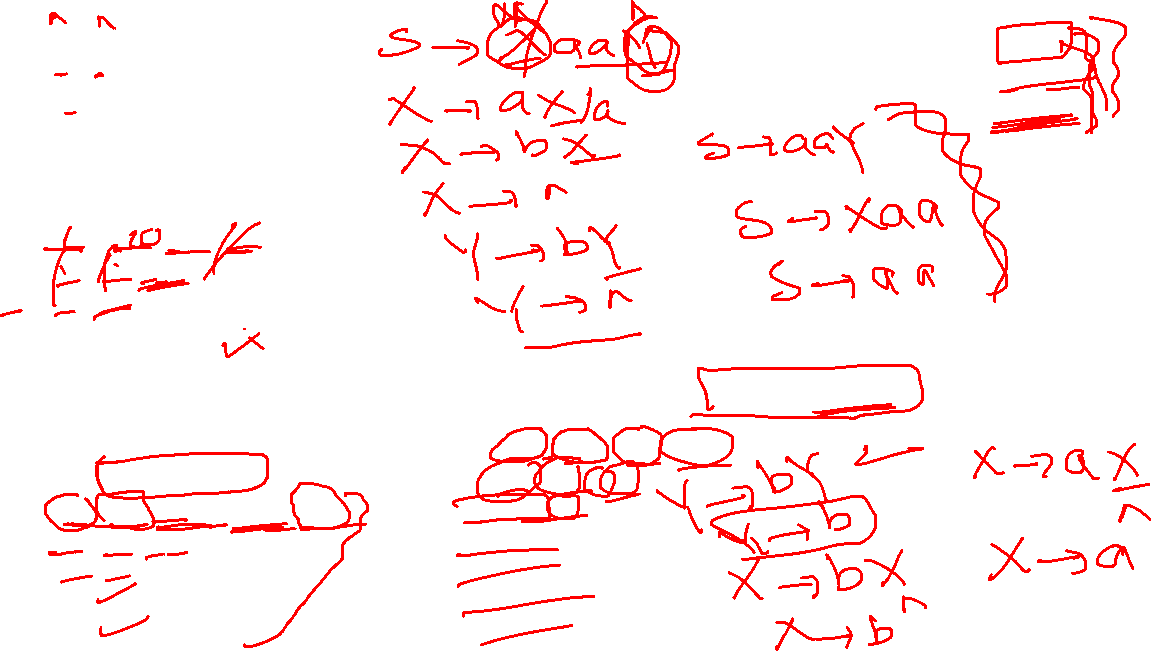 S → X aa Y
X → aX/a
X → bX
X → ^
Y → bY
Y → ^
S → aaY
S → Xaa
S → aa
Y → bY
Y → b
X → bX
^
X → b
X → aX
^
X → a